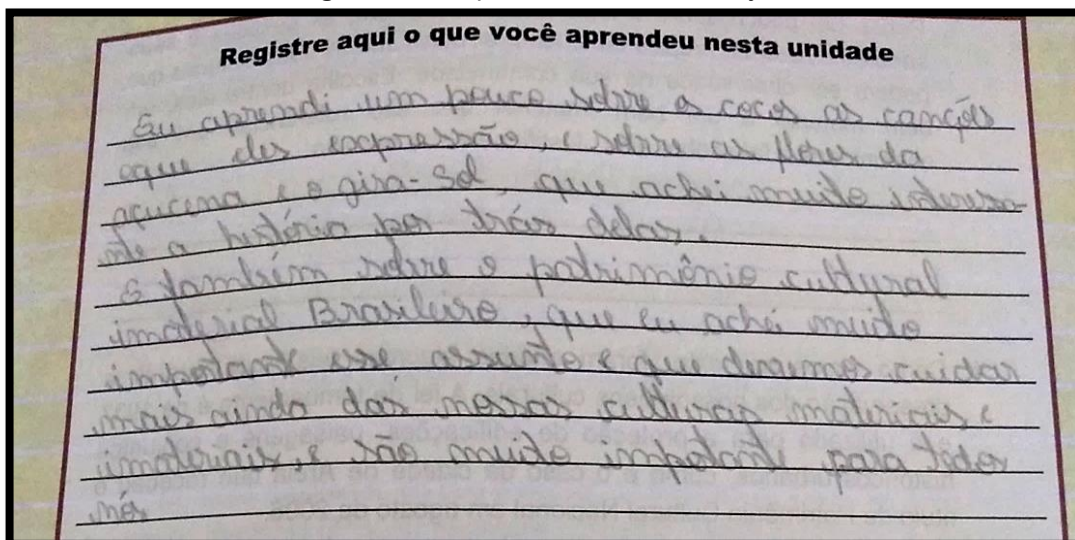 Registre aqui o que você aprendeu nesta unidade
Eu aprendi um pouco sobre os cocos as canções
oque eles expressão, e sobre as flores da
açucena e o gira-sol, que achei muito interessa
nte a história por trás delas.
E também sobre o patrimônio cultural
imaterial Brasileiro, que eu achei muito
importante esse assunto e que devemos cuidar
mais ainda das nossas culturas materiais, e
imateriais, e são muito importante para todos
nós